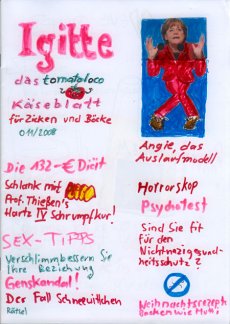 Igitte
das tomatoloco
Käseblatt
für Zicken und Böcke
011/2008
Angie, das
Auslaufmodell
Die 132-€ Diät
Schlank mit
Prof. Thießen's
Hartz IV Schrumpfkur!
SEX-TIPPS
Verschlimmbessern Sie
Ihre Beziehung
Genskandal!
Der Fall Schneeuittchen
Rätsel
Horrorskop
Psychotest
Sind Sie fit
für den
Nichtraucher
Weihnachtsrezepte
Backen wie Mutti